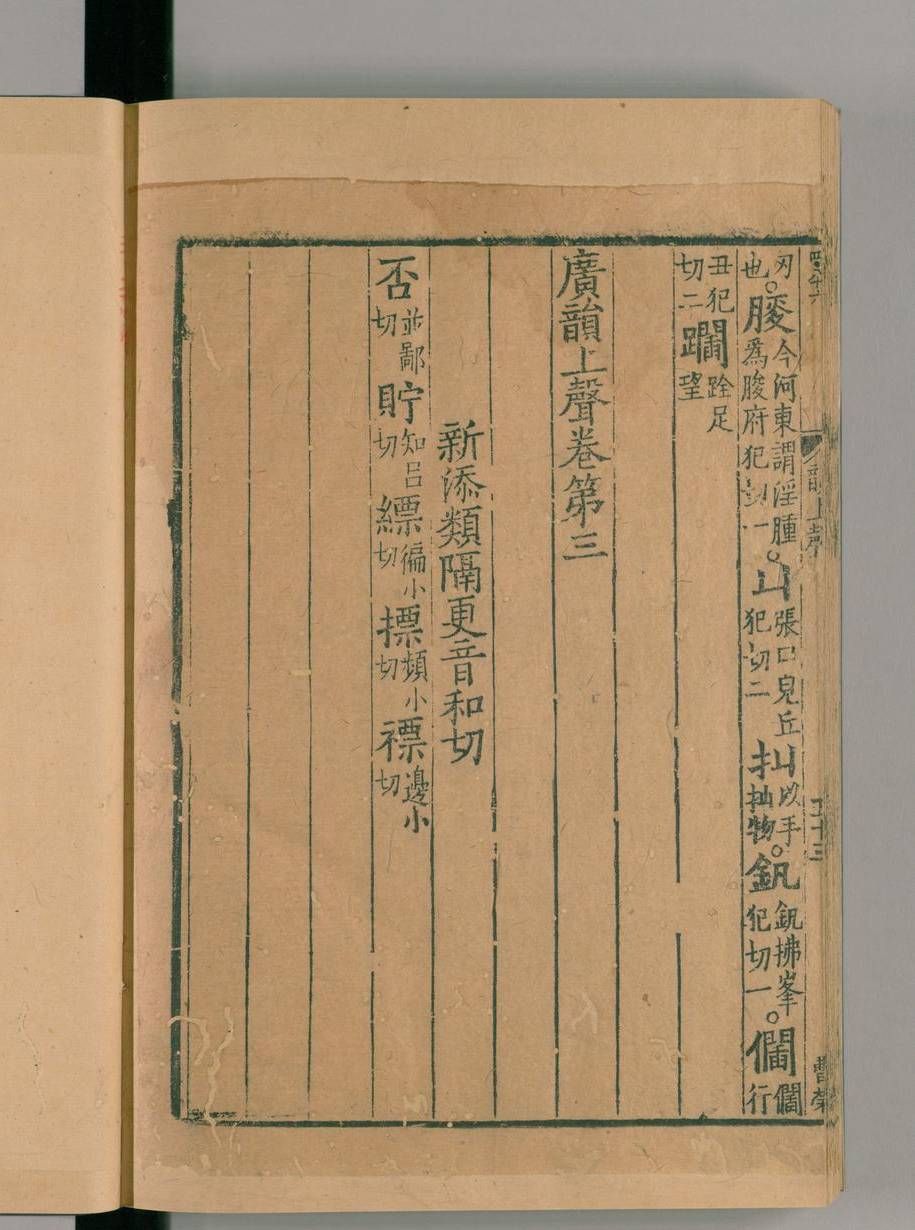 刃也。䐶今河東謂淫腫爲䐶府犯切一。凵張口皃丘犯切二𢪏以手𢪏物。釩釩拂峯犯切一。𠐩𠐩行
丑犯切二躙跧足望
廣韻上聲卷第三
新添類隔更音和切
否並鄙切貯知呂切縹偏小切摽頻小切褾邊小切
韻上聲
五十三
曹榮